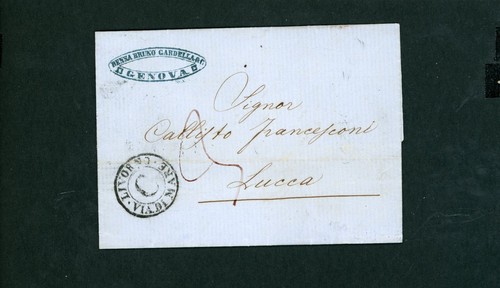 RENZA BRUNO GARDELLA & C.
GENOVA
Signor
Callisto Francesconi
Lucca
VIA DI MARE
C